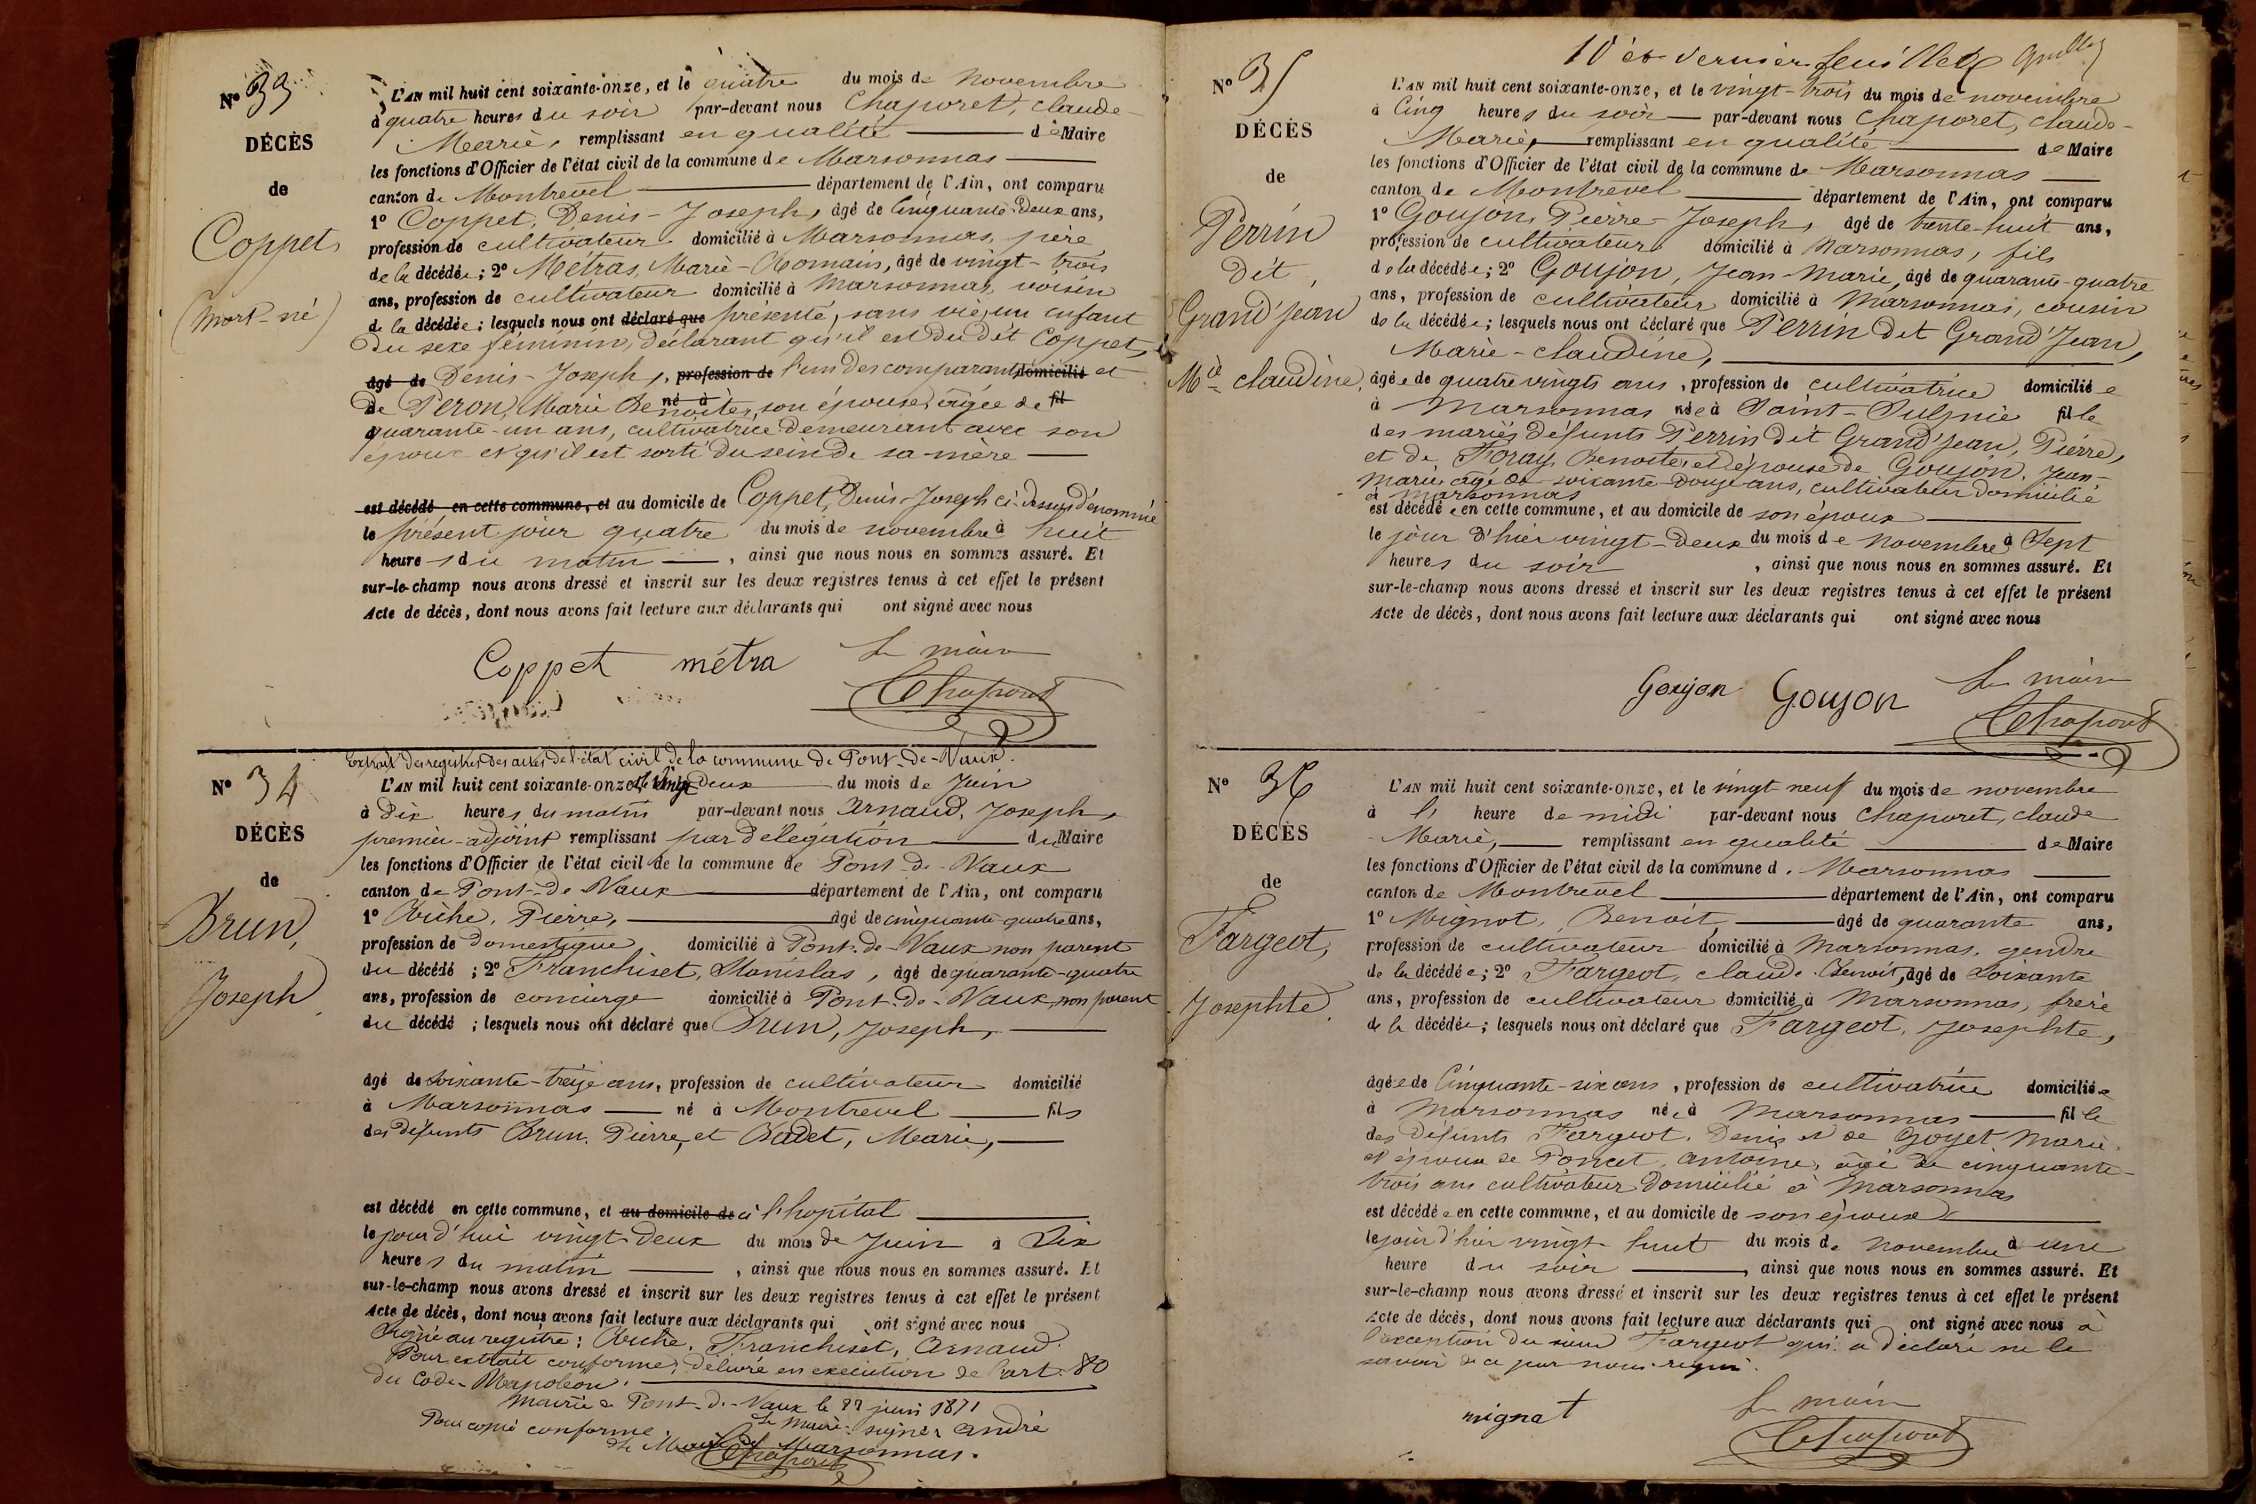 N° 33
DÉCÈS
de
Coppet,
(Mort-né)
L'AN mil huit cent soixante-onze, et le quatre du mois de Novembre
à quatre heures du soir par-devant nous Chaporet, Claude-
Marie, remplissant en qualité de Maire
les fonctions d'Officier de l'état civil de la commune de Marsonnas
canton de Montrevel département de l'Ain, ont comparu
1° Coppet, Denis-Joseph, âgé de Cinquante-deux ans,
profession de cultivateur domicilié à Marsonnas, père
de la décédée; 2° Métras, Marie-Romain, âgé de vingt-trois
ans, profession de cultivateur domicilié à Marsonnas, voisin
de la décédée; lesquels nous ont déclaré que présenté, sans vie, un enfant
du sexe féminin, déclarant qu'il est du dit Coppet,
âgé de Denis-Joseph, profession de l'un des comparants, domicilié et
de Peron, Marie Benoite, né à son épouse, âgée de fil
quarante-un ans, cultivatrice demeurant avec son
époux et qu'il est sorti du sein de sa mère
est décédé en cette commune, et au domicile de Coppet, Denis-Joseph ci-dessus dénommé
le présent jour quatre du mois de novembre à huit
heures du matin, ainsi que nous nous en sommes assuré. Et
sur-le-champ nous avons dressé et inscrit sur les deux registres tenus à cet effet le présent
Acte de décès, dont nous avons fait lecture aux déclarants qui ont signé avec nous
Coppet métra Le maire
Chaporet
N° 34
DÉCÈS
de
Brun,
Joseph
Extrait des registres des actes de l'état civil de la commune de Pont-de-Vaux.
L'AN mil huit cent soixante-onze et le vingt deux du mois de Juin
à Dix heures du matin par-devant nous Arnaud, Joseph,
premier-adjoint remplissant par délégation du Maire
les fonctions d'Officier de l'état civil de la commune de Pont-de-Vaux
canton de Pont-de-Vaux département de l'Ain, ont comparu
1° Riche, Pierre, âgé de cinquante-quatre ans,
profession de domestique domicilié à Pont-de-Vaux non parent
du décédé; 2° Franchiset, Stanislas, âgé de quarante-quatre
ans, profession de concierge domicilié à Pont-de-Vaux, non parent
du décédé; lesquels nous ont déclaré que Brun, Joseph,
âgé de Soixante-treize ans, profession de cultivateur domicilié
à Marsonnas né à Montrevel fils
des défunts Brun, Pierre, et Badet, Marie,
est décédé en cette commune, et au domicile de à l'hopital
le jourd'hui vingt-deux du mois de Juin à Dix
heures du matin, ainsi que nous nous en sommes assuré. Et
sur-le-champ nous avons dressé et inscrit sur les deux registres tenus à cet effet le présent
Acte de décès, dont nous avons fait lecture aux déclarants qui ont signé avec nous
Signé au registre: Riche, Franchiset, Arnaud.
Pour extrait conforme, délivré en exécution de l'art. 80
du Code Napoléon.
Mairie de Pont-de-Vaux le 22 juin 1871
Le Maire: signé, André
Pour copie conforme.
Le Maire de Marsonnas.
Chaporet
10e et dernier feuillet
N° 35
DÉCÈS
de
Perrin
dit
Grand'Jean
Mie claudine.
L'AN mil huit cent soixante-onze, et le vingt-trois du mois de novembre
à Cinq heures du soir par-devant nous Chaporet, Claude-
Marie, remplissant en qualité de Maire
les fonctions d'Officier de l'état civil de la commune de Marsonnas
canton de Montrevel département de l'Ain, ont comparu
1° Goujon, Pierre-Joseph, âgé de trente-huit ans,
profession de cultivateur domicilié à Marsonnas, fils
de la décédée; 2° Goujon, Jean-Marie, âgé de quarante-quatre
ans, profession de cultivateur domicilié à Marsonnas, cousin
de la décédée; lesquels nous ont déclaré que Perrin dit Grand'Jean,
Marie-claudine,
âgée de quatre vingts ans, profession de cultivatrice domiciliée
à Marsonnas née à Saint-Sulpice fille
des mariés défunts Perrin dit Grand'Jean, Pierre,
et de Foray, Benoite, et épouse de Goujon, Jean-
Marie, âgé de soixante-douze ans, cultivateur domicilié
à Marsonnas
est décédée en cette commune, et au domicile de son époux
le jour d'hier vingt-deux du mois de Novembre à Sept
heures du soir, ainsi que nous nous en sommes assuré. Et
sur-le-champ nous avons dressé et inscrit sur les deux registres tenus à cet effet le présent
Acte de décès, dont nous avons fait lecture aux déclarants qui ont signé avec nous
Goujon Goujon Le maire
Chaporet
N° 36
DÉCÈS
de
Fargeot,
Josephte.
L'AN mil huit cent soixante-onze, et le vingt neuf du mois de novembre
à l' heure de midi par-devant nous Chaporet, claude
Marie, remplissant en qualité de Maire
les fonctions d'Officier de l'état civil de la commune d. Marsonnas
canton de Montrevel département de l'Ain, ont comparu
1° Mignot, Benoit, âgé de quarante ans,
profession de cultivateur domicilié à Marsonnas, gendre
de la décédée; 2° Fargeot, claude-Benoit, âgé de soixante
ans, profession de cultivateur domicilié à Marsonnas, frère
de la décédée; lesquels nous ont déclaré que Fargeot, Josephte,
âgée de Cinquante-six ans, profession de cultivatrice domiciliée
à Marsonnas née à Marsonnas fille
des défunts Fargeot, Denis et de Goyet Marie.
et épouse de Poncet, Antoine, âgé de cinquante-
trois ans cultivateur domicilié à Marsonnas
est décédée en cette commune, et au domicile de son époux
le jour d'hier vingt huit du mois de novembre à une
heure du soir, ainsi que nous nous en sommes assuré. Et
sur-le-champ nous avons dressé et inscrit sur les deux registres tenus à cet effet le présent
Acte de décès, dont nous avons fait lecture aux déclarants qui ont signé avec nous à
l'exception du sieur Fargeot qui a déclaré ne le
savoir de ce par nous requis.
mignat Le maire
Chaporet